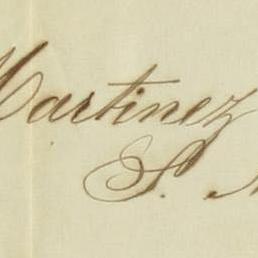 Martinez
S.